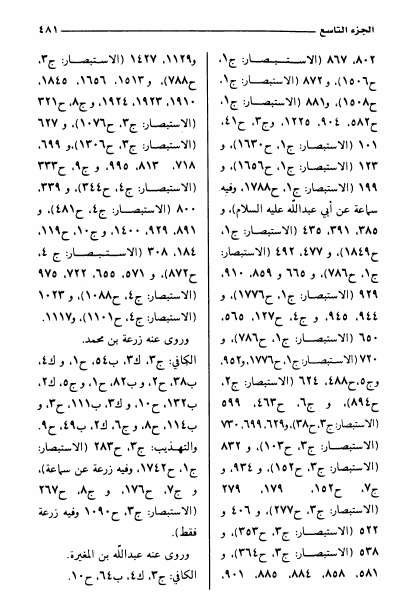 الجزء التاسع ٤٨١
٨٠٢، ٨٦٧ (الاستبصار: ج١،
ح١٥٠٦)، و ٨٧٢ (الاستبصار: ج١،
ح١٥٠٨)، و٨٨١ (الاستبصار: ج١،
ح٥٨٢، ٩٠٤، ١٢٢٥، وج٣، ح٤١،
١٠١ (الاستبصار: ج١، ح١٦٣٠)، و
١٢٣ (الاستبصار: ج١، ح١٦٥٦)، و
١٩٩ (الاستبصار: ج١، ح١٧٨٨، وفيه
سماعة عن أبي عبدالله عليه السلام)، و
٣٨٥، ٣٩١، ٤٣٥ (الاستبصار: ج١،
ح١٨٤٩)، و ٤٧٧، ٤٩٢ (الاستبصار:
ج١، ح٧٨٦)، و ٦٦٥ و ٨٥٩، ٩١٠،
٩٢٩ (الاستبصار: ج١، ح١٧٧٦)، و
٩٤٤، ٩٤٥، و ج٤، ح١٢٧، ٥٦٥،
٦٥٠ (الاستبصار: ج١، ح٧٨٦)، و
٧٢٠ (الاستبصار: ج١، ح١٧٧٦، و٩٥٢،
وج٥، ح٤٨٨، ٦٢٤ (الاستبصار: ج٢،
ح٨٩٤)، و ج٦، ح٤٦٣، ٥٩٩
(الاستبصار: ج٣، ح٣٨)، و٦٢٩، ٦٩٩، ٧٣٠
(الاستبصار: ج٣، ح١٠٣)، و ٨٣٢
(الاستبصار: ج٣، ح١٥٢)، و ٩٣٤، و
ج٧، ح١٥٢، ١٧٩، ٢٧٩
(الاستبصار: ج٣، ح٢٧٧)، و ٤٠٦ و
٥٢٢ (الاستبصار: ج٣، ح٣٥٣)، و
٥٣٨ (الاستبصار: ج٣، ح٣٦٤)، و
٥٨١، ٨٥٨، ٨٨٤، ٨٨٥، ٩٠١،
و١١٢٩، ١٤٢٧ (الاستبصار: ج٣،
ح٧٨٨)، و١٥١٣، ١٦٥٦، ١٨٤٥،
١٩١٠، ١٩٢٣، ١٩٢٤، وج٨، ح٣٢١
(الاستبصار: ج٣، ح١٠٧٦)، و ٦٢٧
(الاستبصار: ج٣، ح١٣٠٦)، و ٦٩٩،
٧١٨، ٨١٣، ٩٩٥، و ج٩، ح٣٣٣
(الاستبصار: ج٤، ح٣٤٤)، و ٣٣٩،
٨٠٠ (الاستبصار: ج٤، ح٤٨١)، و
٨٩١، ٩٢٩، ١٤٠٠، و ج١٠، ح١١٩،
١٨٤، ٣٠٨ (الاستبصار: ج ٤،
ح٨٧٢)، و ٥٧١، ٦٥٥، ٧٢٢، ٩٧٥
(الاستبصار: ج٤، ح١٠٨٨)، و ١٠٢٣
(الاستبصار: ج٤، ح١١٠١)، و١١١٧.
وروى عنه زرعة بن محمد.
الكافي: ج٣، ك٣، ب٥٤، ح١، و ك٤،
ب٣٨، ح٢، و ب٨٢، ح١، و ج٥، ك٢،
ب١٣٢، ح١٠، و ك٣، ب١١١، ح٣، و
ب١١٤، ح٨، و ج٦، ك٢، ب٤٩، ح٩.
والتهذيب: ج٣، ح٢٨٣ (الاستبصار:
ج١، ح١٧٤٢، وفيه زرعة عن سماعة)،
و ج٧، ح١٧٦، و ج٨، ح٢٦٧
(الاستبصار: ج٣، ح١٠٩٠ وفيه زرعة
فقط).
وروى عنه عبدالله بن المغيرة.
الكافي: ج٣، ك٤، ب٦٤، ح١٠.